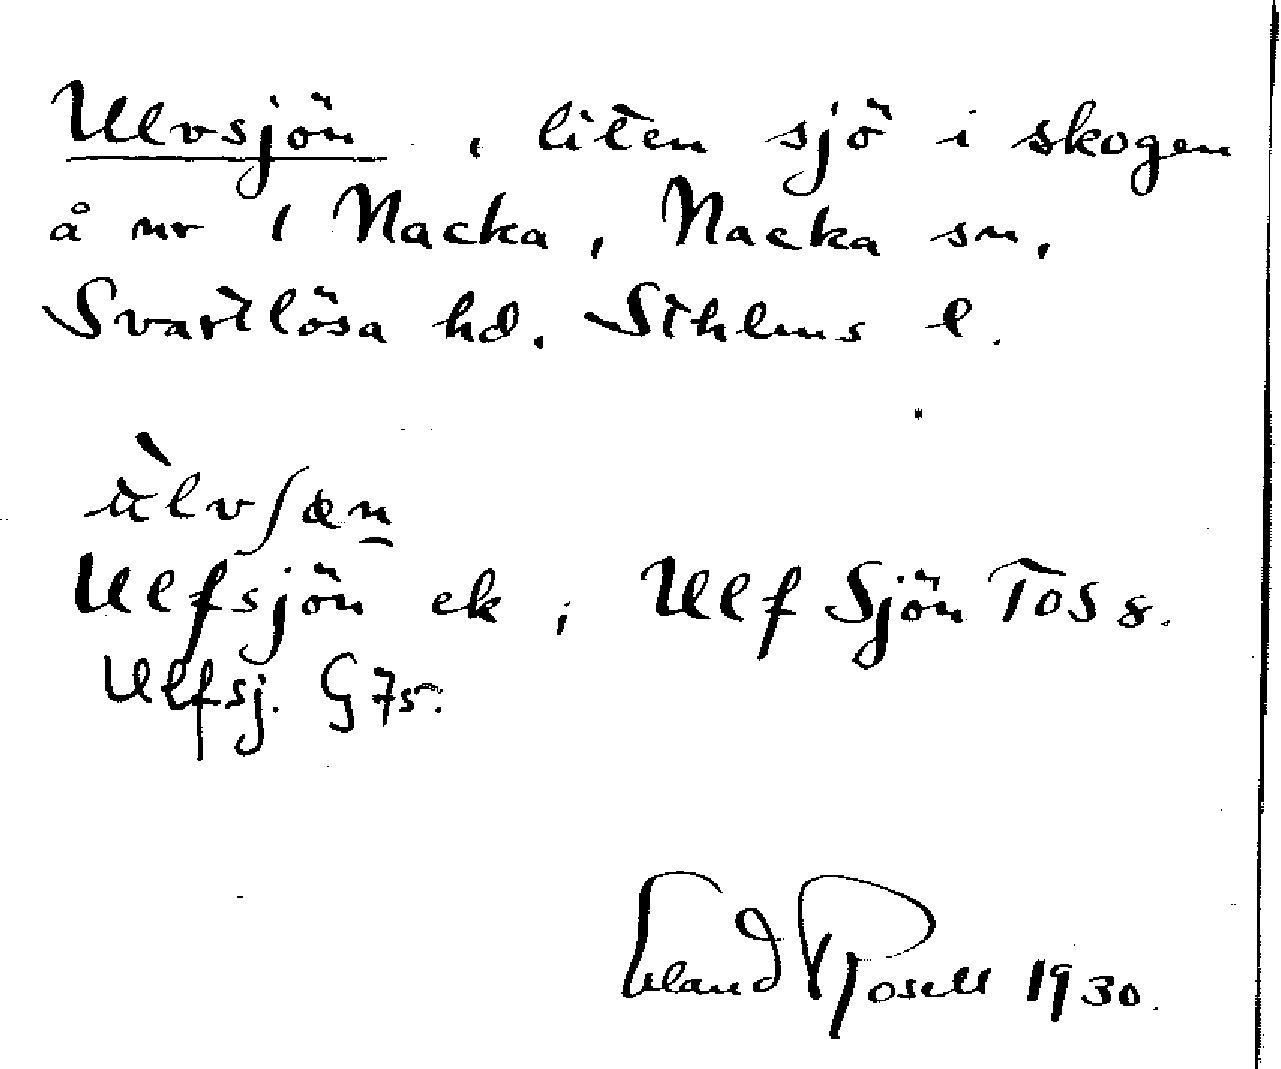 Ulvsjön, liten sjö i skogen
å nr 1 Nacka, Nacka sn,
Svartlösa hd. Sthlms l.
ùlvʃæn
Ulfsjön ek; Ulf Sjön TOS 8.
Ulfsj. G 75.
Erland Rosell 1930.